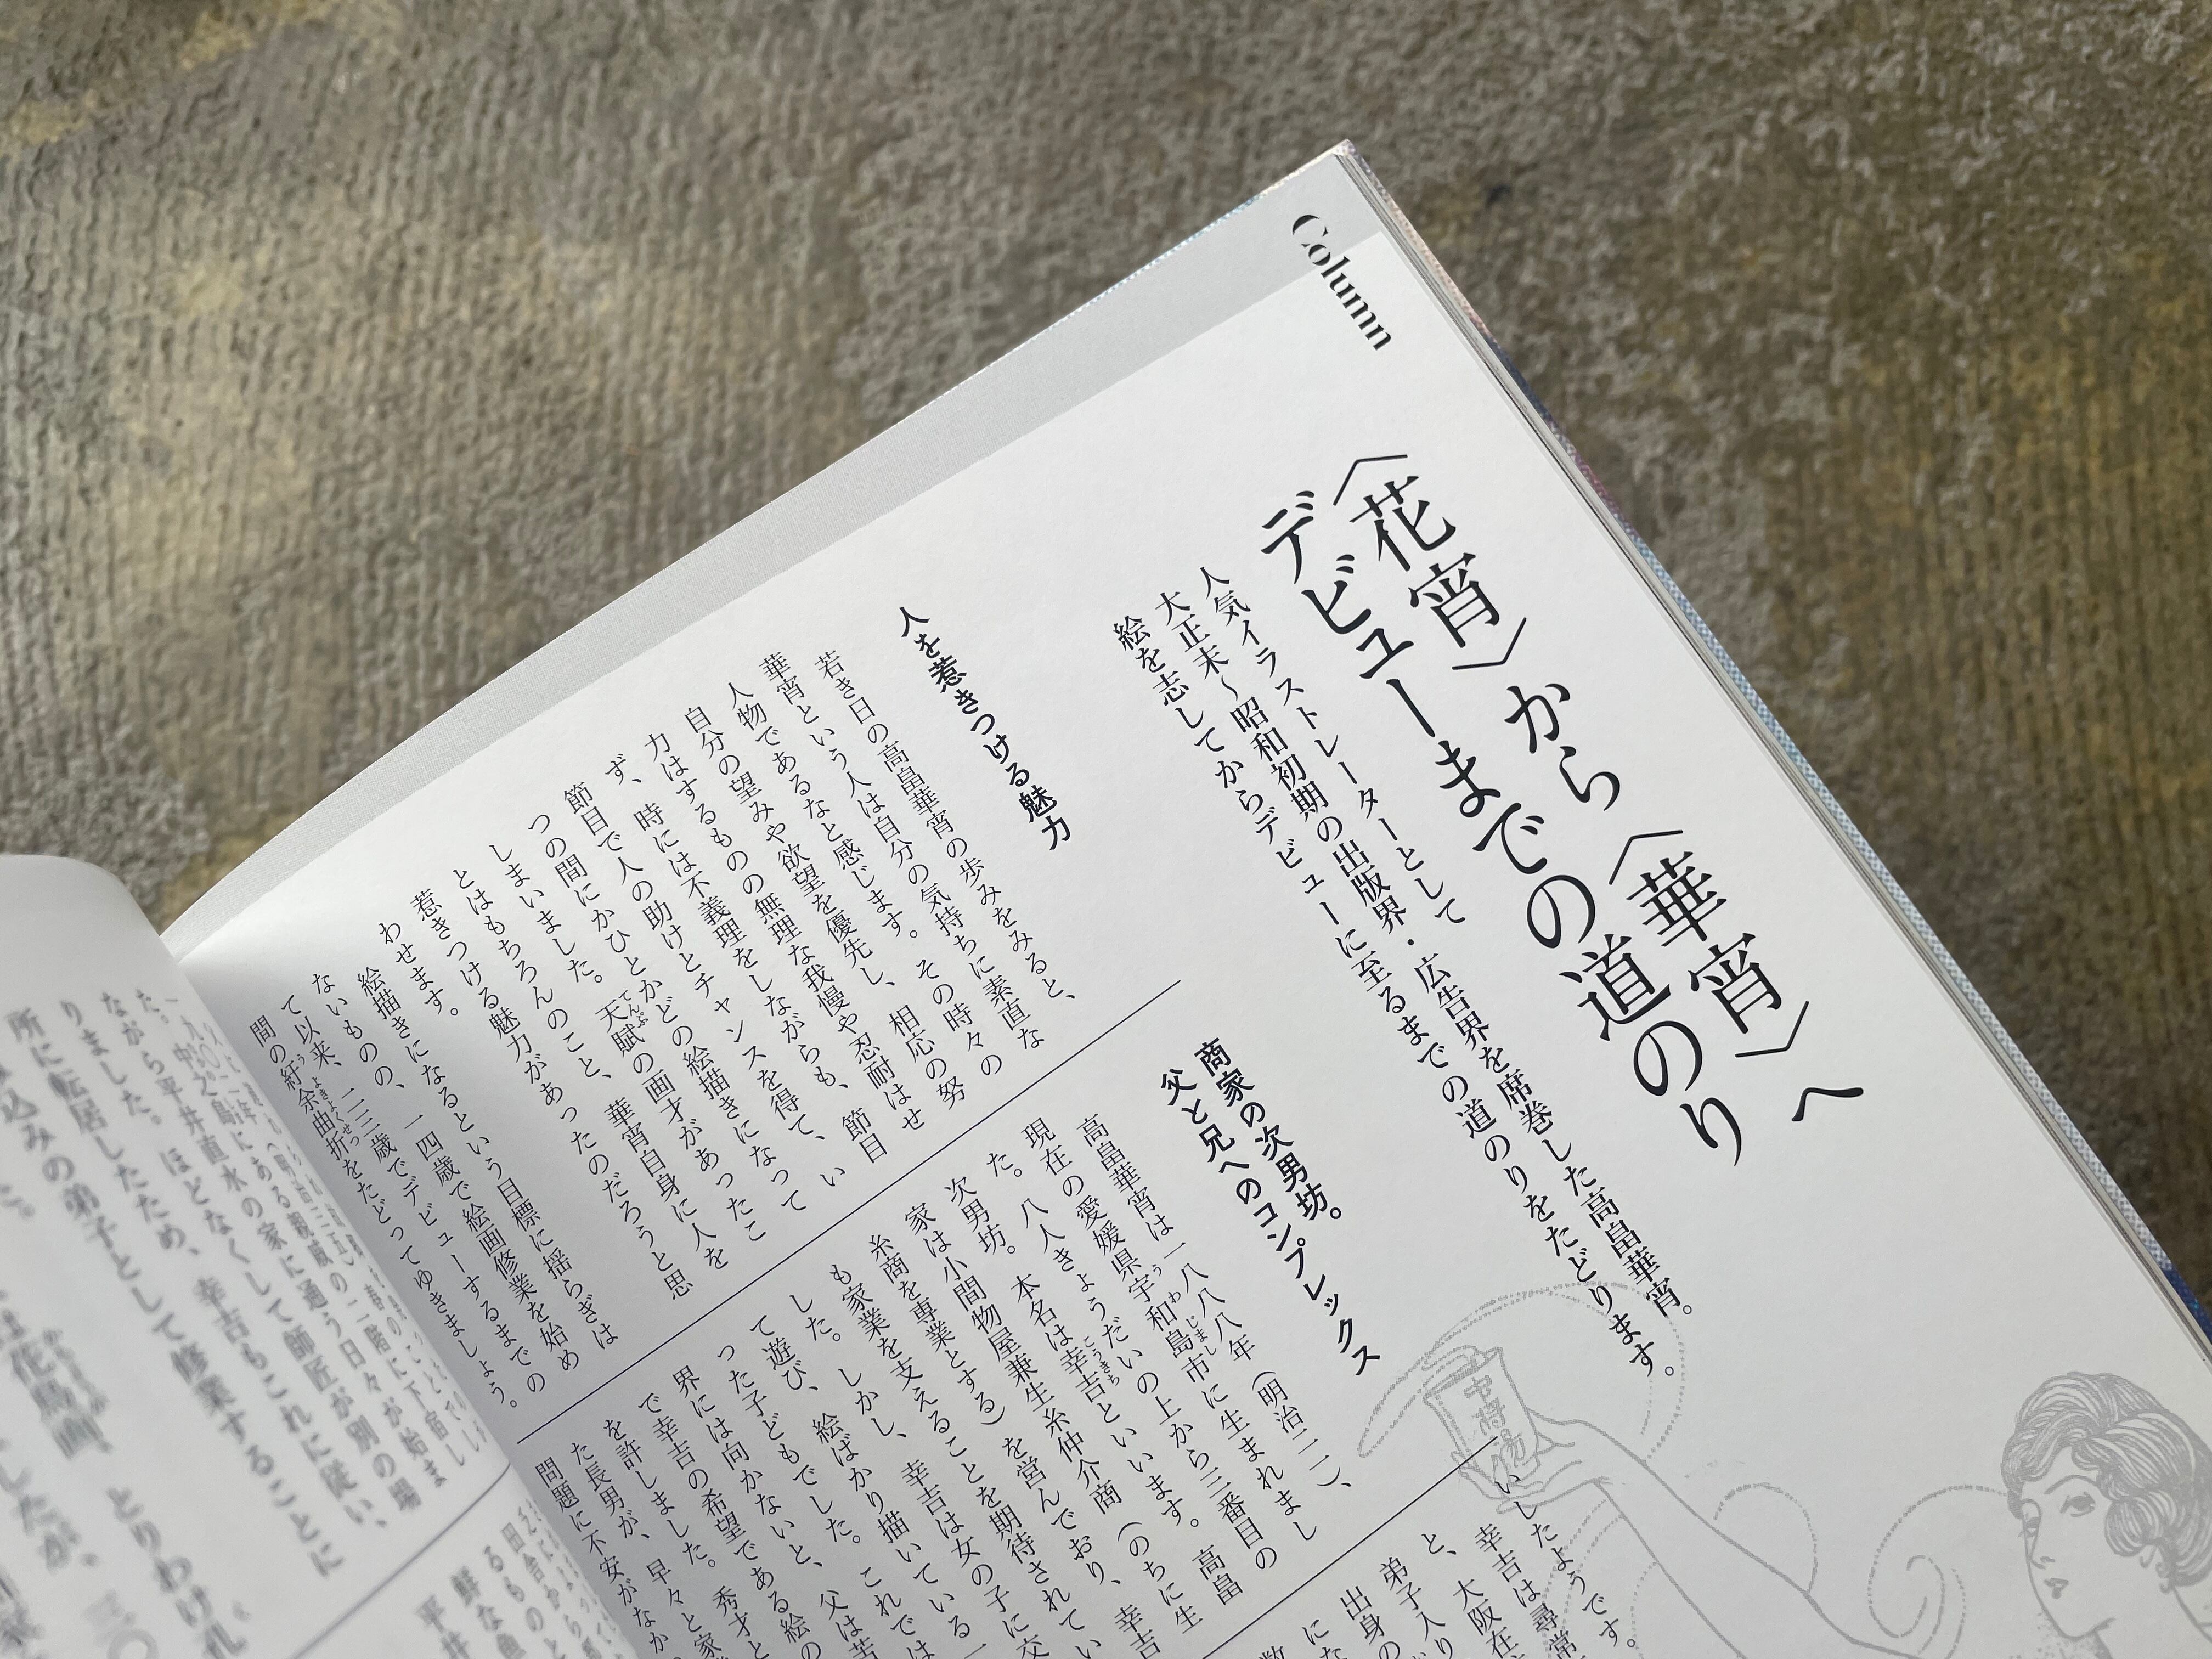 Column
〈花宵〉から〈華宵〉へ
デビューまでの道のり
人気イラストレーターとして
大正末〜昭和初期の出版界・広告界を席巻した高畠華宵。
絵を志してからデビューに至るまでの道のりをたどります。
人を惹きつける魅力
若き日の高畠華宵の歩みをみると、
華宵という人は自分の気持ちに素直な
人物であるなと感じます。その時々の
自分の望みや欲望を優先し、相応の努
力はするものの無理な我慢や忍耐はせ
ず、時には不義理をしながらも、節目
節目で人の助けとチャンスを得て、い
つの間にかひとかどの絵描きになって
しまいました。天賦の画才があったこ
とはもちろんのこと、華宵自身に人を
惹きつける魅力があったのだろうと思
わせます。
絵描きになるという目標に揺らぎは
ないものの、一四歳で絵画修業を始め
て以来、二三歳でデビューするまでの
間の紆余曲折をたどってゆきましょう。
商家の次男坊。
父と兄へのコンプレックス
高畠華宵は一八八八年（明治二一）、
現在の愛媛県宇和島市に生まれまし
た。八人きょうだいの上から三番目の
次男坊。本名は幸吉といいます。高畠
家は小間物屋兼生糸仲介商（のちに生
糸商を専業とする）を営んでおり、幸吉
も家業を支えることを期待されてい
した。しかし、幸吉は女の子に交
て遊び、絵ばかり描いている一
った子どもでした。これでは
界には向かないと、父は苦
で幸吉の希望である絵の
を許しました。秀才と
た長男が、早々と家
問題に不安がなか
いしたようです。
幸吉は尋常
と、大阪在
弟子入り
出身の
にな
数
中将湯
中之島にある親戚の二階に下宿し
ながら平井直水の家に通う日々が始ま
りました。ほどなくして師匠が別の場
所に転居したため、幸吉もこれに従い、
込みの弟子として修業することに
は花鳥画、とりわけ孔
したが、三〇
るものと
鮮な魚
平井